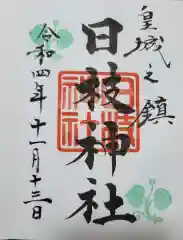 皇城之鎮
日枝神社
令和四年十一月十三日